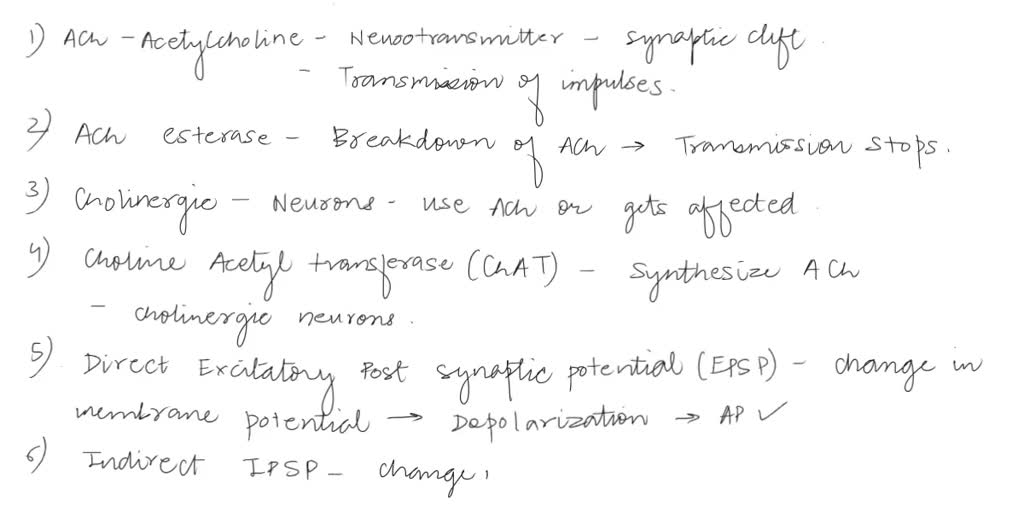 1) ACh - Acetylcholine - Neurotransmitter - synaptic cleft.
- Transmission of impulses.
2) ACh esterase - Breakdown of ACh → Transmission stops.
3) Cholinergic - Neurons - use ACh or gets affected.
4) Choline Acetyl transferase (ChAT) - Synthesize ACh
- cholinergic neurons.
5) Direct Excitatory Post synaptic potential (EPSP) - change in
membrane potential → Depolarization → AP ✓
6) Indirect IPSP - change,